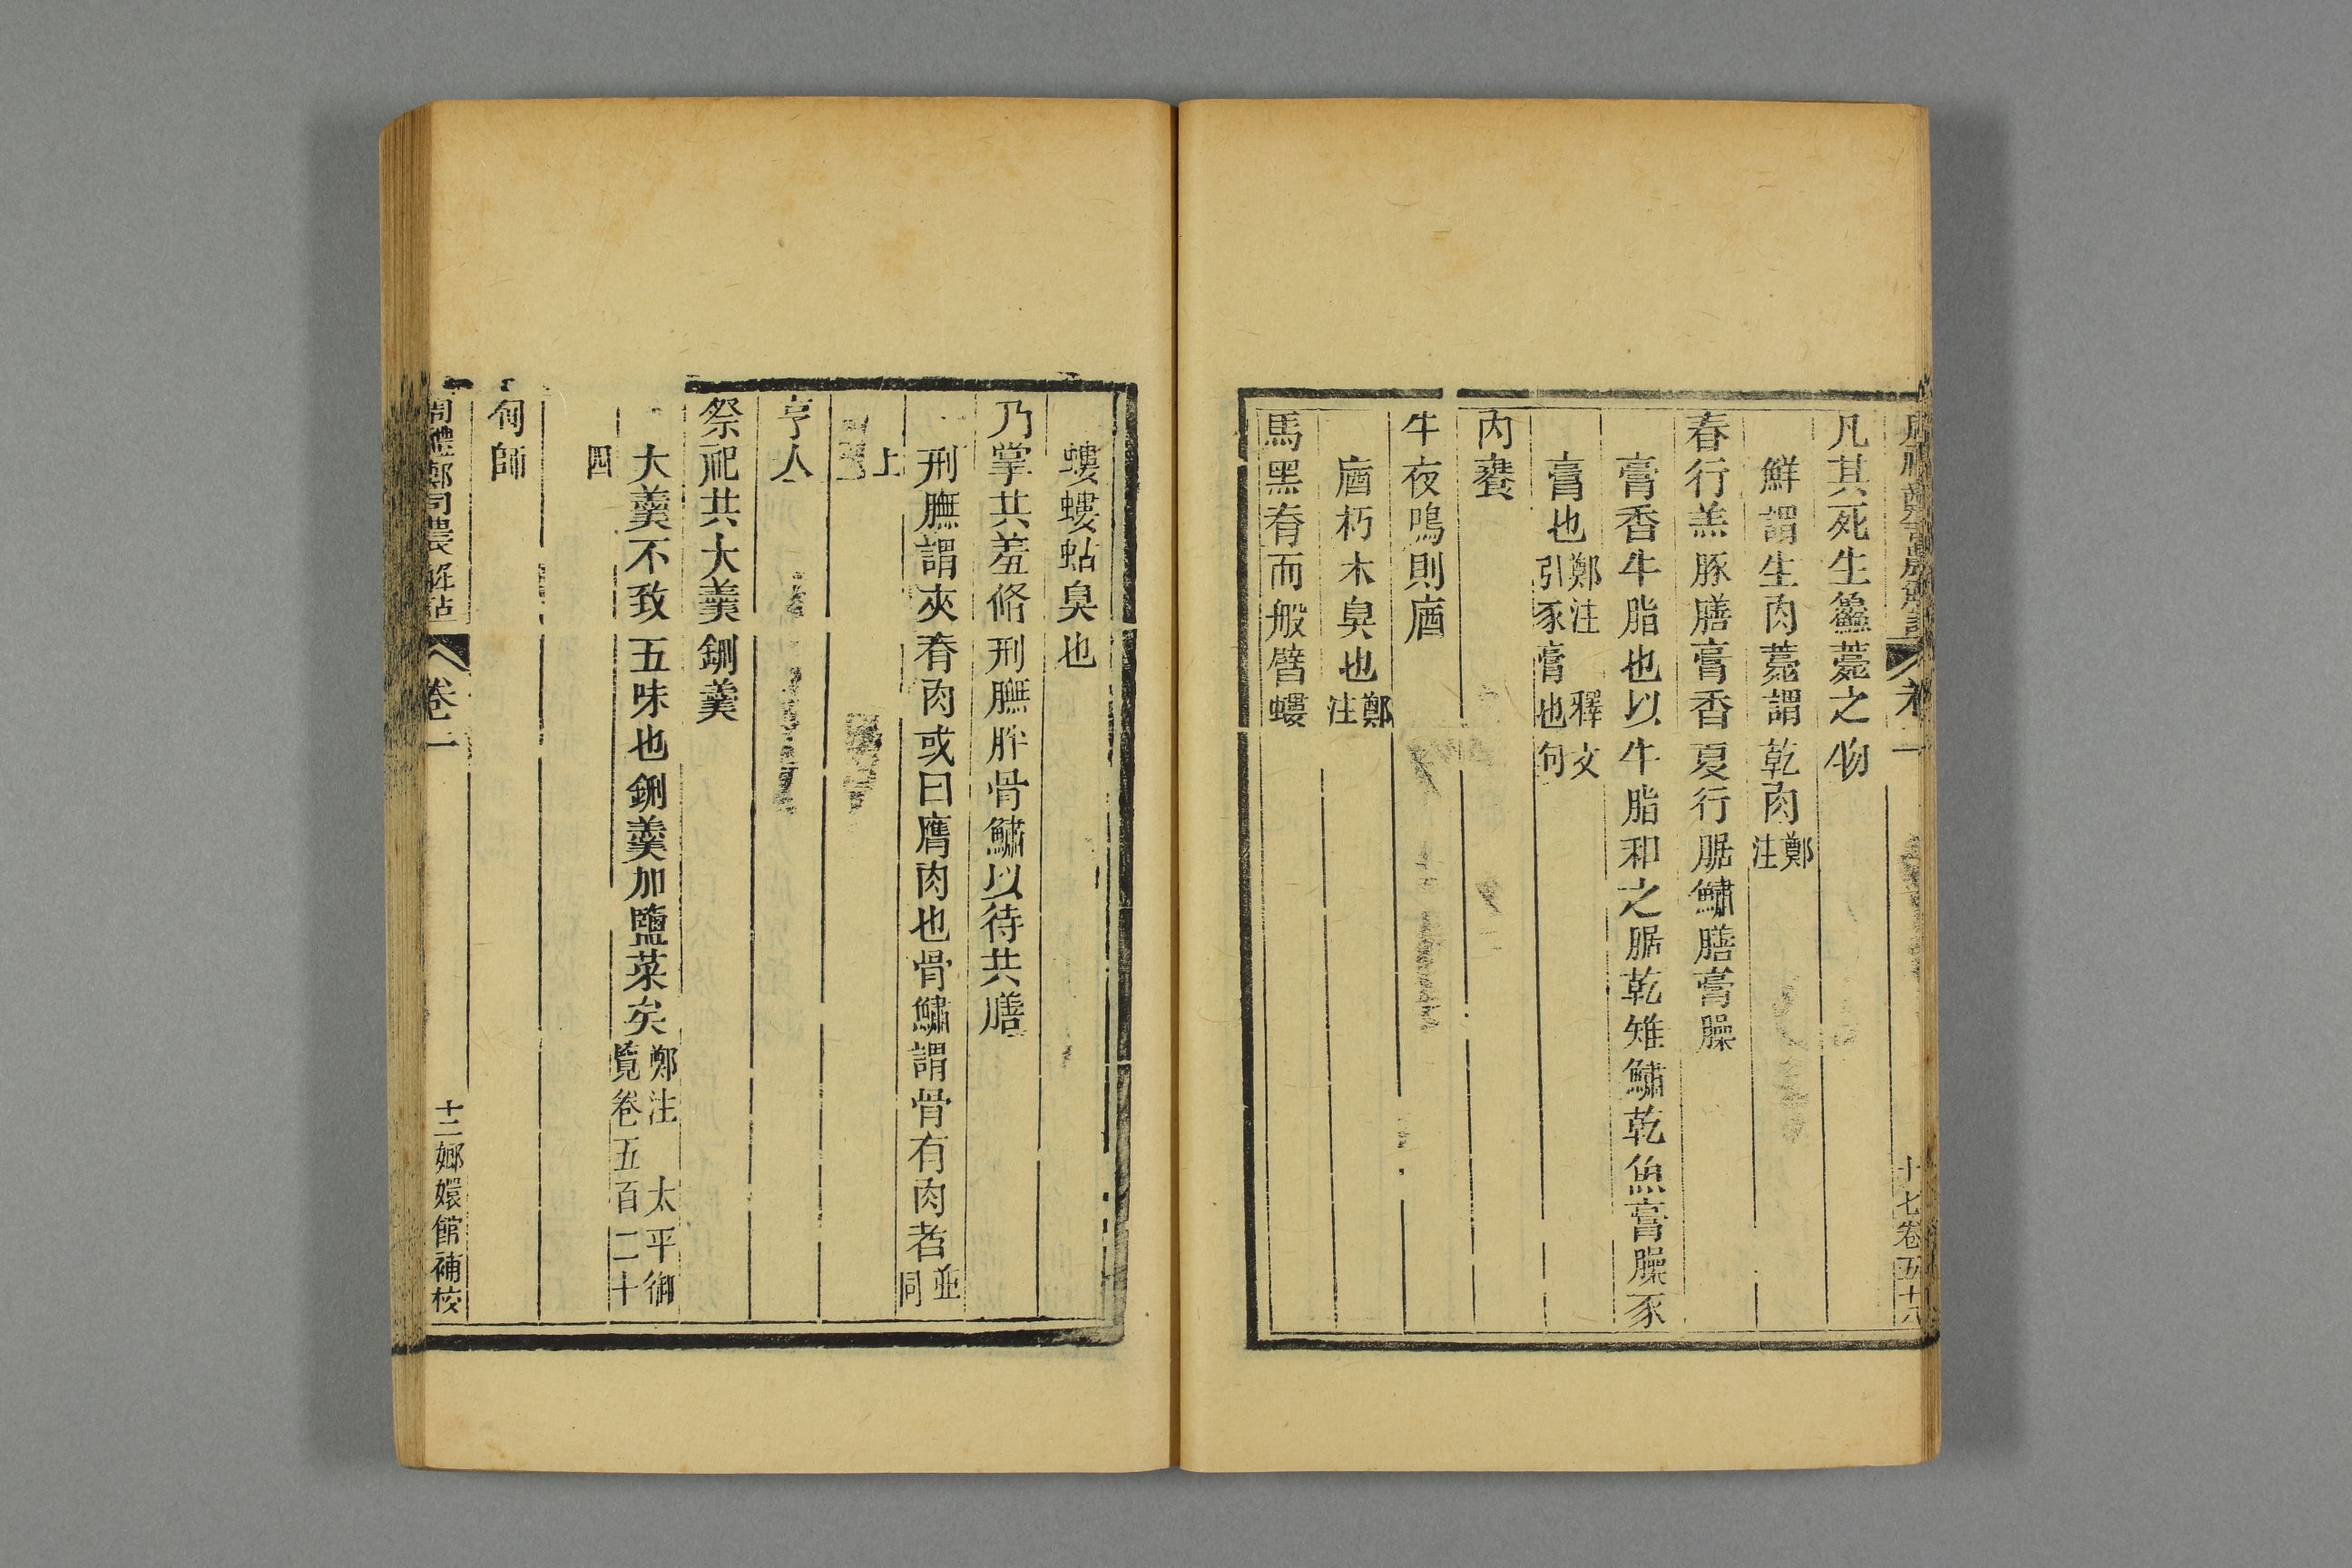 凡其死生鱻薧之物
鮮謂生肉薧謂乾肉鄭注
春行羔豚膳膏香夏行腒鱐膳膏臊
膏香牛脂也以牛脂和之腒乾雉鱐乾魚膏臊豕
膏也鄭注 釋文引豕膏也句
內饔
牛夜鳴則庮
庮朽木臭也鄭注
馬黑脊而般臂螻
螻螻蛄臭也
乃掌共羞脩刑膴胖骨鱐以待共膳
刑膴謂夾脊肉或曰膺肉也骨鱐謂骨有肉者並同
上
亨人
祭祀共大羹鉶羹
大羹不致五味也鉶羹加鹽菜矣鄭注 太平御覽卷五百二十
四
甸師
周禮鄭司農解詁 卷一 十二 嫏嬛館補校